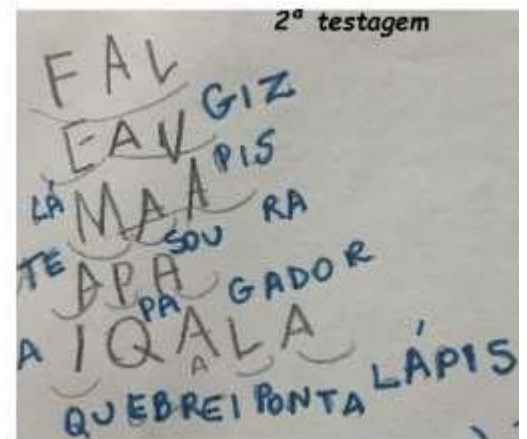 2ª testagem
FAL
GIZ
EAV
LÁ PIS
MAA
TE SOU RA
APA
A PA GADOR
IQALA
A
QUEBREI PONTA LÁPIS